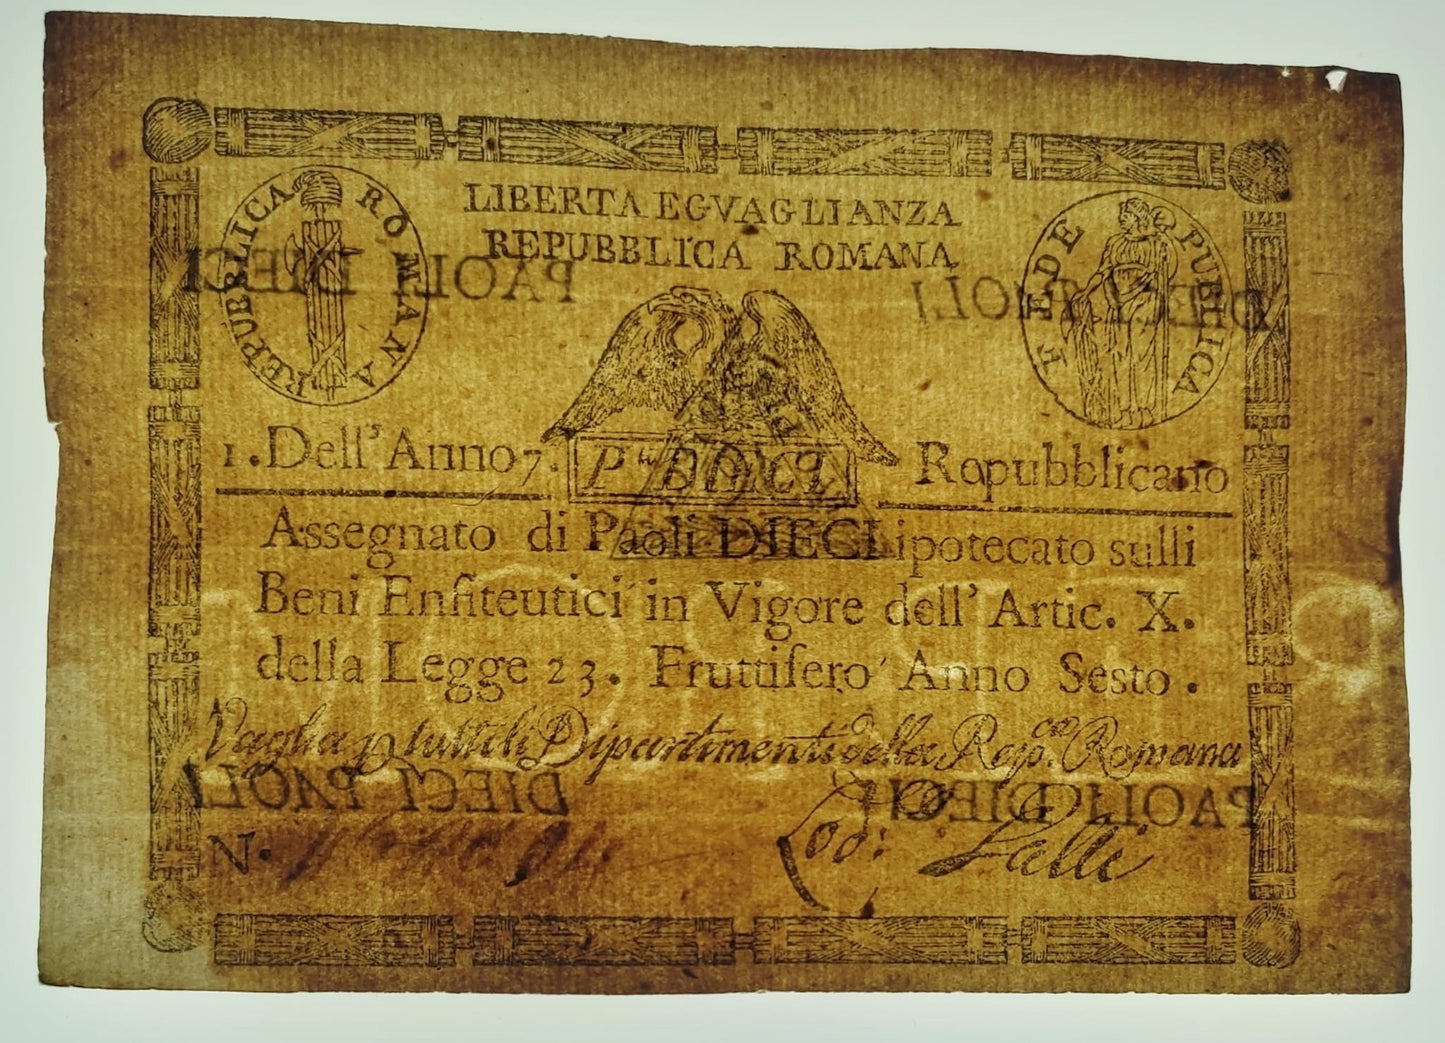 LIBERTA EGVAGLIANZA
REPUBBLICA ROMANA
REPUBBLICA ROMANA
FEDE PUBLICA
PAOLI DIECI
DIECI PAOLI
1. Dell' Anno 7.
P.li DIECI
Repubblicano
Assegnato di Paoli DIECI ipotecato sulli
Beni Enfiteutici in Vigore dell' Artic. X.
della Legge 23. Fruttifero Anno Sesto.
Vaglia p tutti li Dipartimenti della Rep.ca Romana
DIECI PAOLI
PAOLI DIECI
N.
Lelli